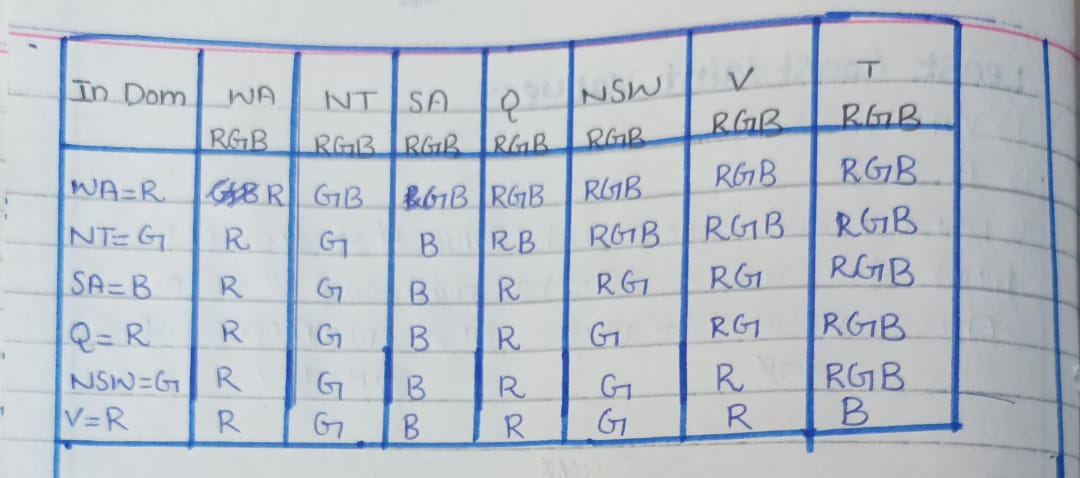 In Dom WA NT SA Q NSW V T
RGB RGB RGB RGB RGB RGB RGB
WA=R R GB GB RGB RGB RGB RGB
NT=G R G B RB RGB RGB RGB
SA=B R G B R RG RG RGB
Q=R R G B R G RG RGB
NSW=G R G B R G R RGB
V=R R G B R G R B